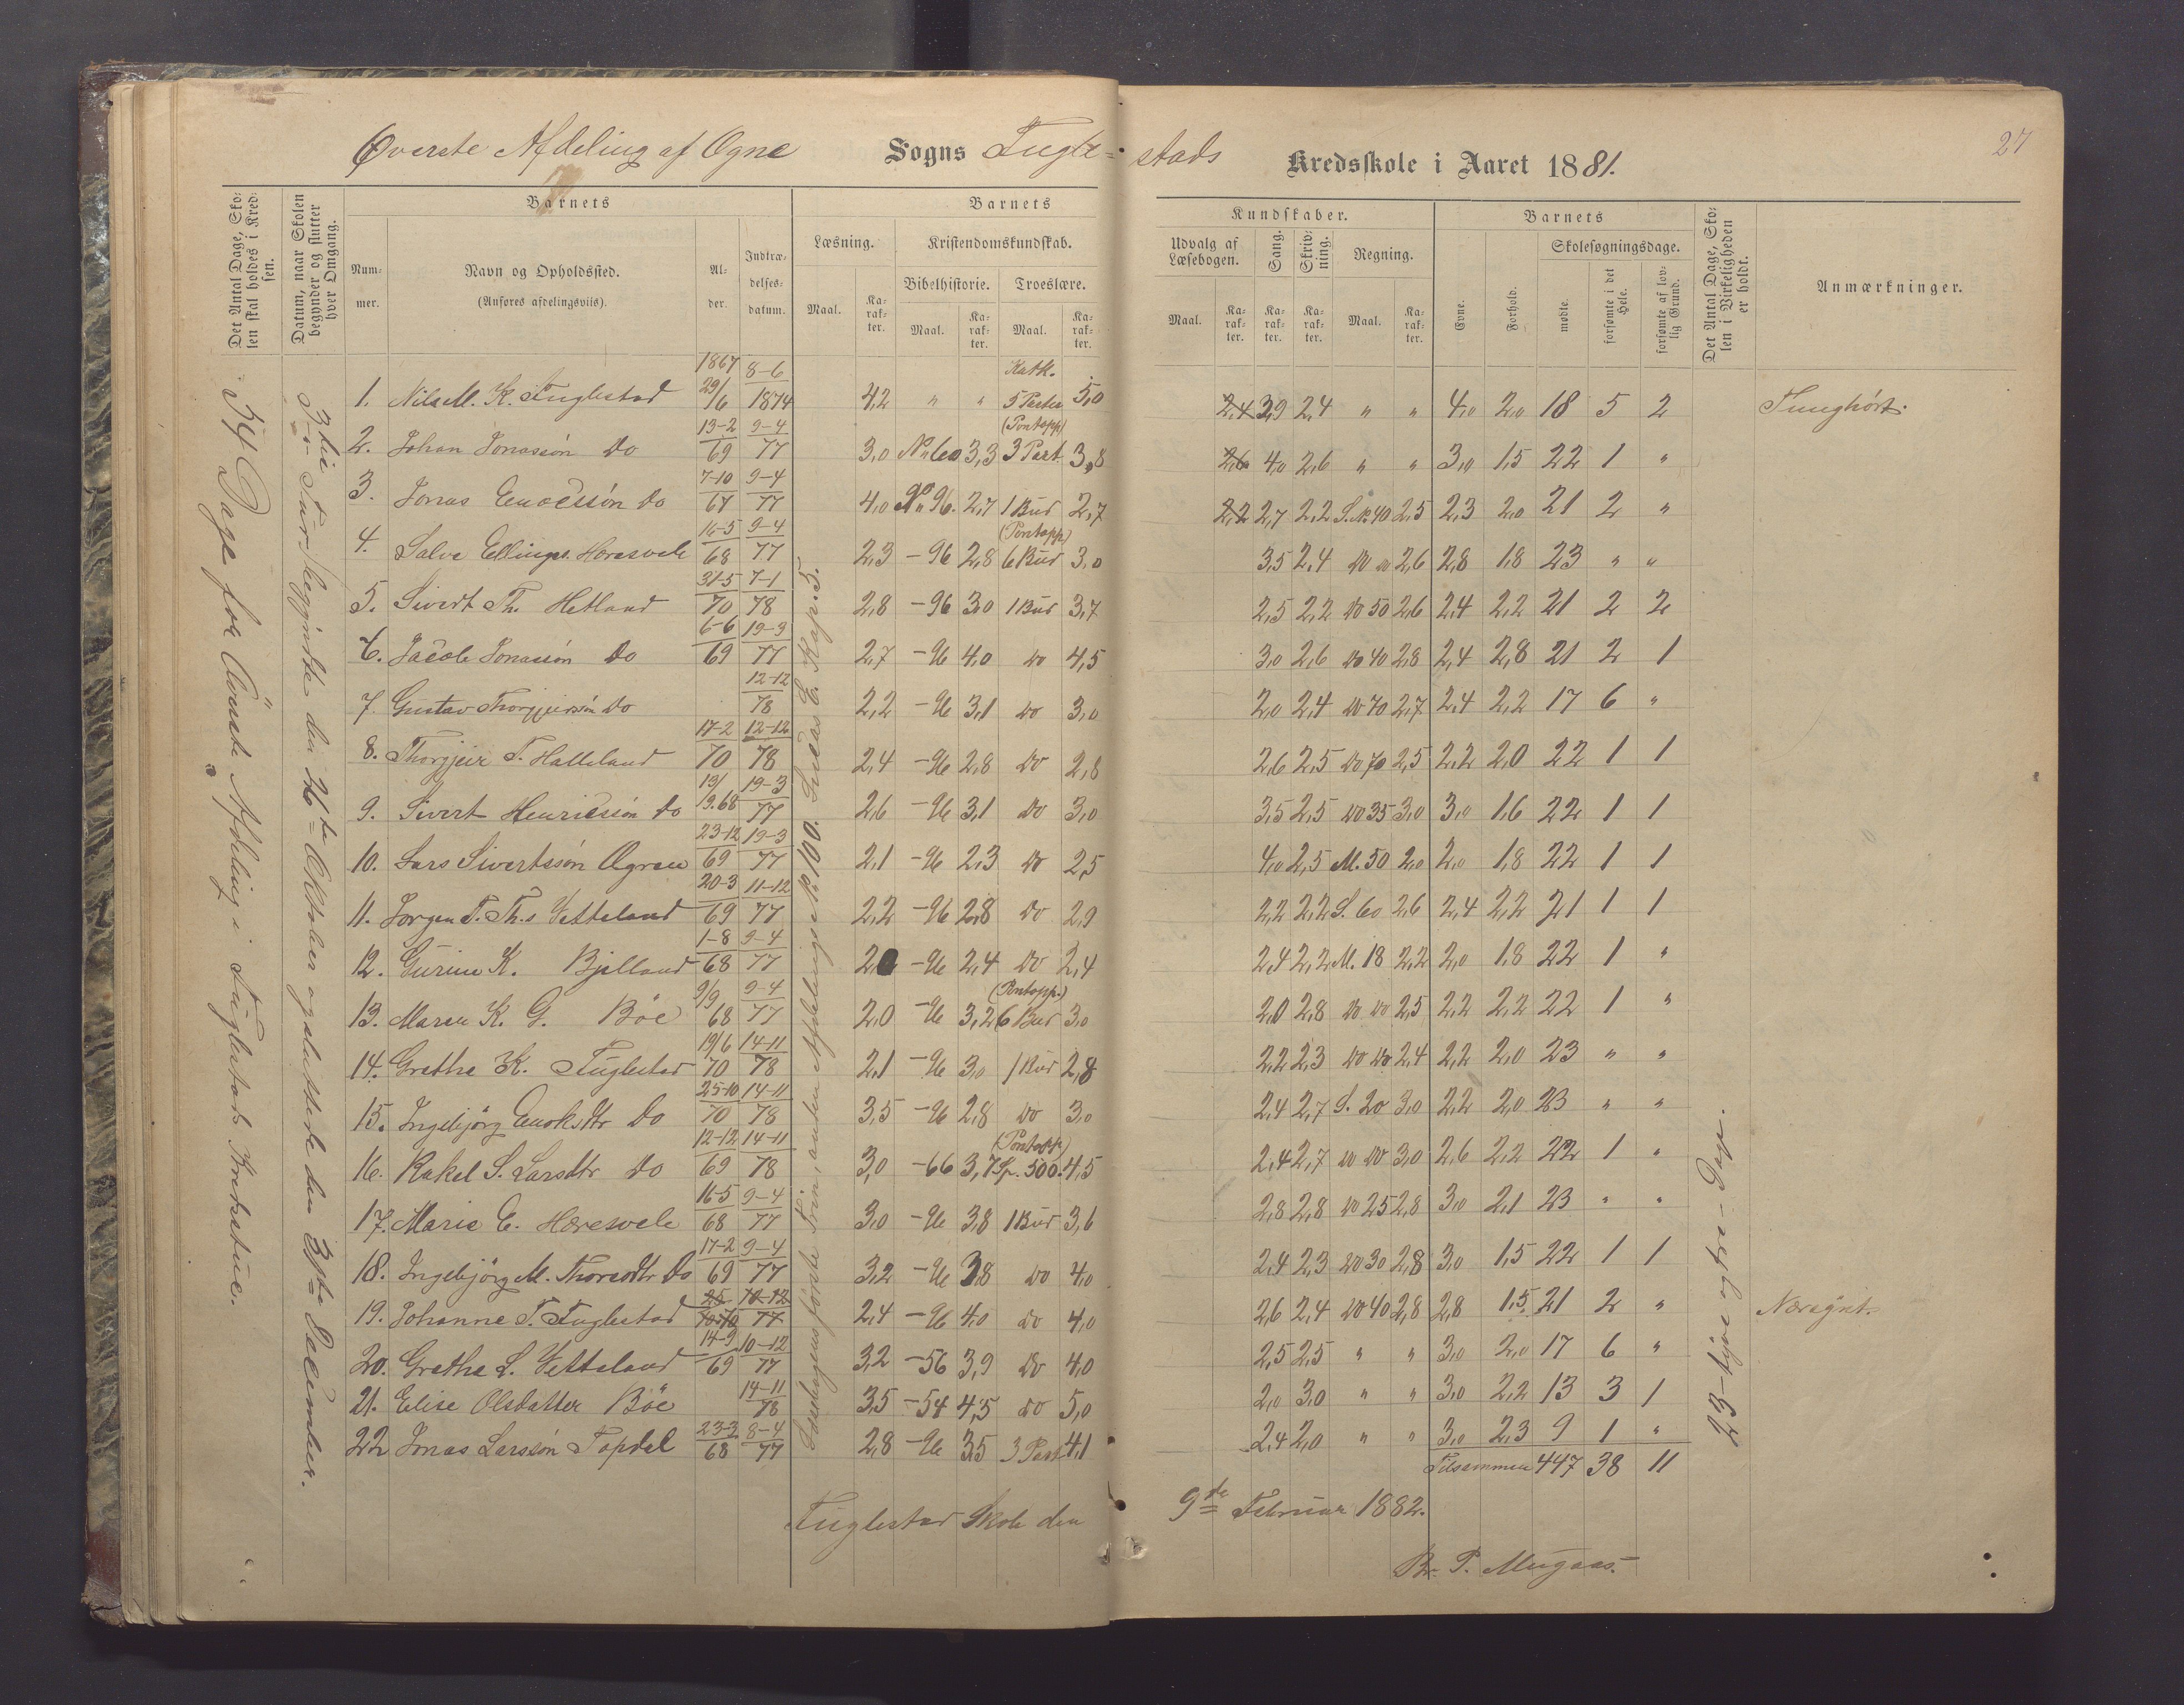 27
Øverste Afdeling af Ogne Sogns Fugle= stads Kredsskole i Aaret 1881.
Det Antal Dage, Sko-
len skal holdes i Kred-
sen.
Datum, naar Skolen
begynder og slutter
hver Omgang.
Barnets
Num-
mer.
Navn og Opholdssted.
(Anføres afdelingsviis).
Al-
der.
Indtræ-
delses-
datum.
Barnets
Læsning.
Maal.
Ka-
rak-
ter.
Kristendomskundskab.
Bibelhistorie.
Maal.
Ka-
rak-
ter.
Troeslære.
Maal.
Ka-
rak-
ter.
Kundskaber.
Udvalg af
Læsebogen.
Maal.
Ka-
rak-
ter.
Sang.
Ka-
rak-
ter.
Skriv-
ning.
Ka-
rak-
ter.
Regning.
Maal.
Ka-
rak-
ter.
Barnets
Evne.
Forhold.
Skolesøgningsdage.
mødte.
forsømte i det
Hele.
forsømte af lov-
lig Grund.
Det Antal Dage, Sko-
len i Virkeligheden
er holdt.
Anmærkninger.
Dage for Øverste Afdeling i Fuglestads Kredsstue.
3die Tur begyndte den 26de Oktober og sluttede den 31te December.
Læsebogens første Trin, anden Afdeling No 100.
23 - tyve og tre - Dage.
1. Nils M. K. Fuglestad 1867 29/6 8-6 1874 4,2 " " Kath. 5 Parter 5,0 2,4 3,9 2,4 " " 4,0 2,0 18 5 2 Tunghørt.
2. Johan Jonassön Do 13-2 69 9-4 77 3,0 No 60 3,3 (Pontopp) 3 Part. 3,8 2,6 4,0 2,6 " " 3,0 1,5 22 1 "
3. Jonas Enocssön Do 7-10 67 9-4 77 4,0 No 96. 2,7 1 Bud 2,7 2,2 2,7 2,2 S. No 40 2,5 2,3 2,0 21 2 "
4. Salve Ellings. Horesvele 16-5 68 9-4 77 2,3 - 96 2,8 (Pontopp) 6 Bud 3,0 3,5 2,4 Do Do 2,6 2,8 1,8 23 " "
5. Sivert Th. Hetland 31-5 70 7-1 78 2,8 - 96 3,0 1 Bud 3,7 2,5 2,2 Do 50 2,6 2,4 2,2 21 2 2
6. Jacob Jonassön Do 6-6 69 19-3 77 2,7 - 96 4,0 Do 4,5 3,0 2,6 Do 40 2,8 2,4 2,8 21 2 1
7. Gustav Thorgjeirssön Do 12-12 78 2,2 - 96 3,1 Do 3,0 2,0 2,4 Do 70 2,7 2,4 2,2 17 6 "
8. Thorgjeir T. Halleland 17-2 70 12-12 78 2,4 - 96 2,8 Do 2,8 2,6 2,5 Do 70 2,5 2,2 2,0 22 1 1
9. Sivert Henricssön Do 13/ 19-3 77 2,6 - 96 3,1 Do 3,0 3,5 2,5 Do 35 3,0 3,0 1,6 22 1 1
10. Lars Sivertssön Ogreie 23-12 69 19-3 77 2,1 - 96 2,3 Do 2,5 4,0 2,5 M. 50 2,0 2,0 1,8 22 1 1
11. Jørgen T. Th.s Vetteland 20-3 69 11-12 77 2,2 - 96 2,8 Do 2,9 2,2 2,2 S. 60 2,6 2,4 2,2 21 1 1
12. Gurine K. Bjelland 1-8 68 9-4 77 - 96 2,4 Do 2,4 2,4 2,2 M. 18 2,2 2,0 1,8 22 1 "
13. Maren K. G. Böe 9/9 68 9-4 77 2,0 - 96 3,2 (Pontopp.) 6 Bud 3,0 2,0 2,8 Do Do 2,5 2,2 2,2 22 1 "
14. Grethe K. Fuglestad 19/6 70 14-11 78 2,1 - 96 3,0 1 Bud 2,8 2,2 2,3 Do Do 2,4 2,2 2,0 23 " "
15. Ingebjörg Enoksdtr Do 25-10 70 14-11 78 3,5 - 96 2,8 Do 3,0 2,4 2,7 S. 20 3,0 2,2 2,0 23 " "
16. Rakel S. Larsdtr Do 12-12 69 14-11 78 3,0 - 66 3,7 (Pontopp) Sp. 500. 4,5 2,4 2,7 Do Do 3,0 2,6 2,2 22 1 "
17. Marie E. Horesvele 16-5 68 9-4 77 3,0 - 96 3,8 1 Bud 3,6 2,8 2,8 Do 25 2,8 3,0 2,1 23 " "
18. Ingebjörg M. Thorsdtr Do 17-2 69 9-4 77 3,2 - 96 3,8 Do 4,0 2,4 2,3 Do 30 2,8 3,0 1,5 22 1 1
19. Johanne T. Fuglestad 10-12 77 2,4 - 96 4,0 Do 4,0 2,6 2,4 Do 40 2,8 2,8 1,5 21 2 "
20. Grethe L. Vetteland 14-9 69 10-12 77 3,2 - 56 3,9 Do 4,0 2,5 2,5 " " 3,0 2,0 17 6 "
21. Elise Olsdatter Böe 14-11 78 3,5 - 54 4,5 Do 5,0 2,0 3,0 " " 3,0 2,2 13 3 1
22 Jonas Larssön Topdal 23-3 68 8-4 77 2,8 - 96 3,5 3 Part 4,1 2,4 2,0 " " 3,0 2,3 9 1 "
Tilsammen 447 38 11
Fuglestad Skole den 9de Februar 1882.
Br. P. Mugaas.